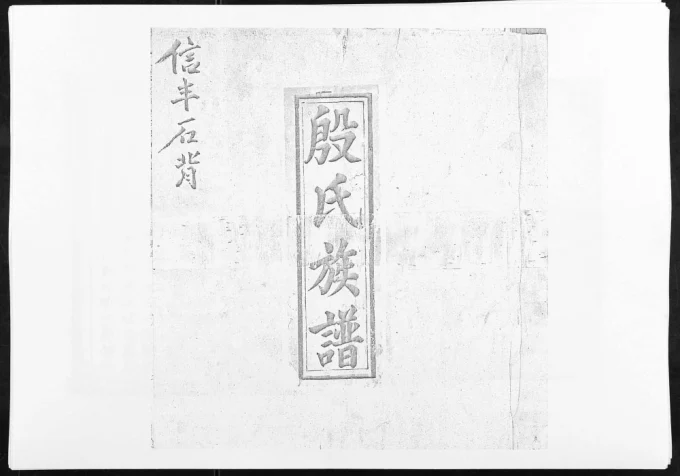 信丰石背
殷氏族譜